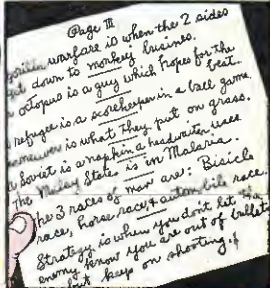 Page III
gorilla warfare is when the 2 sides
get down to monkey busines.
octopus is a guy which hopes for the best.
refugee is a scorekeeper in a ball game.
is what they put on grass.
a Soviet is a napkin a headwaiter uses
The Malay States is in Malaria.
The 3 races of man are: Bisicle
race, horse race & automobile race.
Strategy is when you don't let the
enemy know you are out of bullets
but keep on shooting!